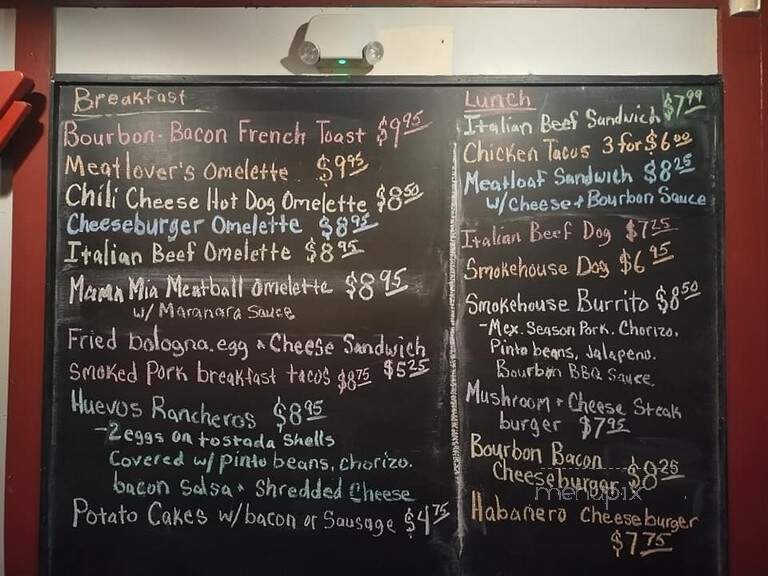 Breakfast
Bourbon-Bacon French Toast $9.95
Meatlover's Omelette $9.95
Chili Cheese Hot Dog Omelette $8.50
Cheeseburger Omelette $8.95
Italian Beef Omelette $8.95
Mama Mia Meatball Omelette $8.95
w/ Maranara Sauce
Fried bologna.egg & Cheese Sandwich
$5.25
Smoked Pork breakfast tacos $8.75
Huevos Rancheros $8.95
-2eggs on tostada shells
Covered w/pinto beans, chorizo.
bacon salsa + Shredded Cheese
Potato Cakes w/bacon or Sausage $4.75
Lunch
Italian Beef Sandwich $7.99
Chicken Tacos 3 for $6.00
Meatloaf Sandwich $8.25
w/Cheese + Bourbon Sauce
Italian Beef Dog $7.25
Smokehouse Dog $6.95
Smokehouse Burrito $8.50
-Mex. Season Pork. Chorizo,
Pinto beans, Jalapeno.
Bourbon BBQ Sauce.
Mushroom + Cheese Steak
burger $7.95
Bourbon Bacon
Cheeseburger $8.25
menupix
Habanero Cheeseburger
$7.75